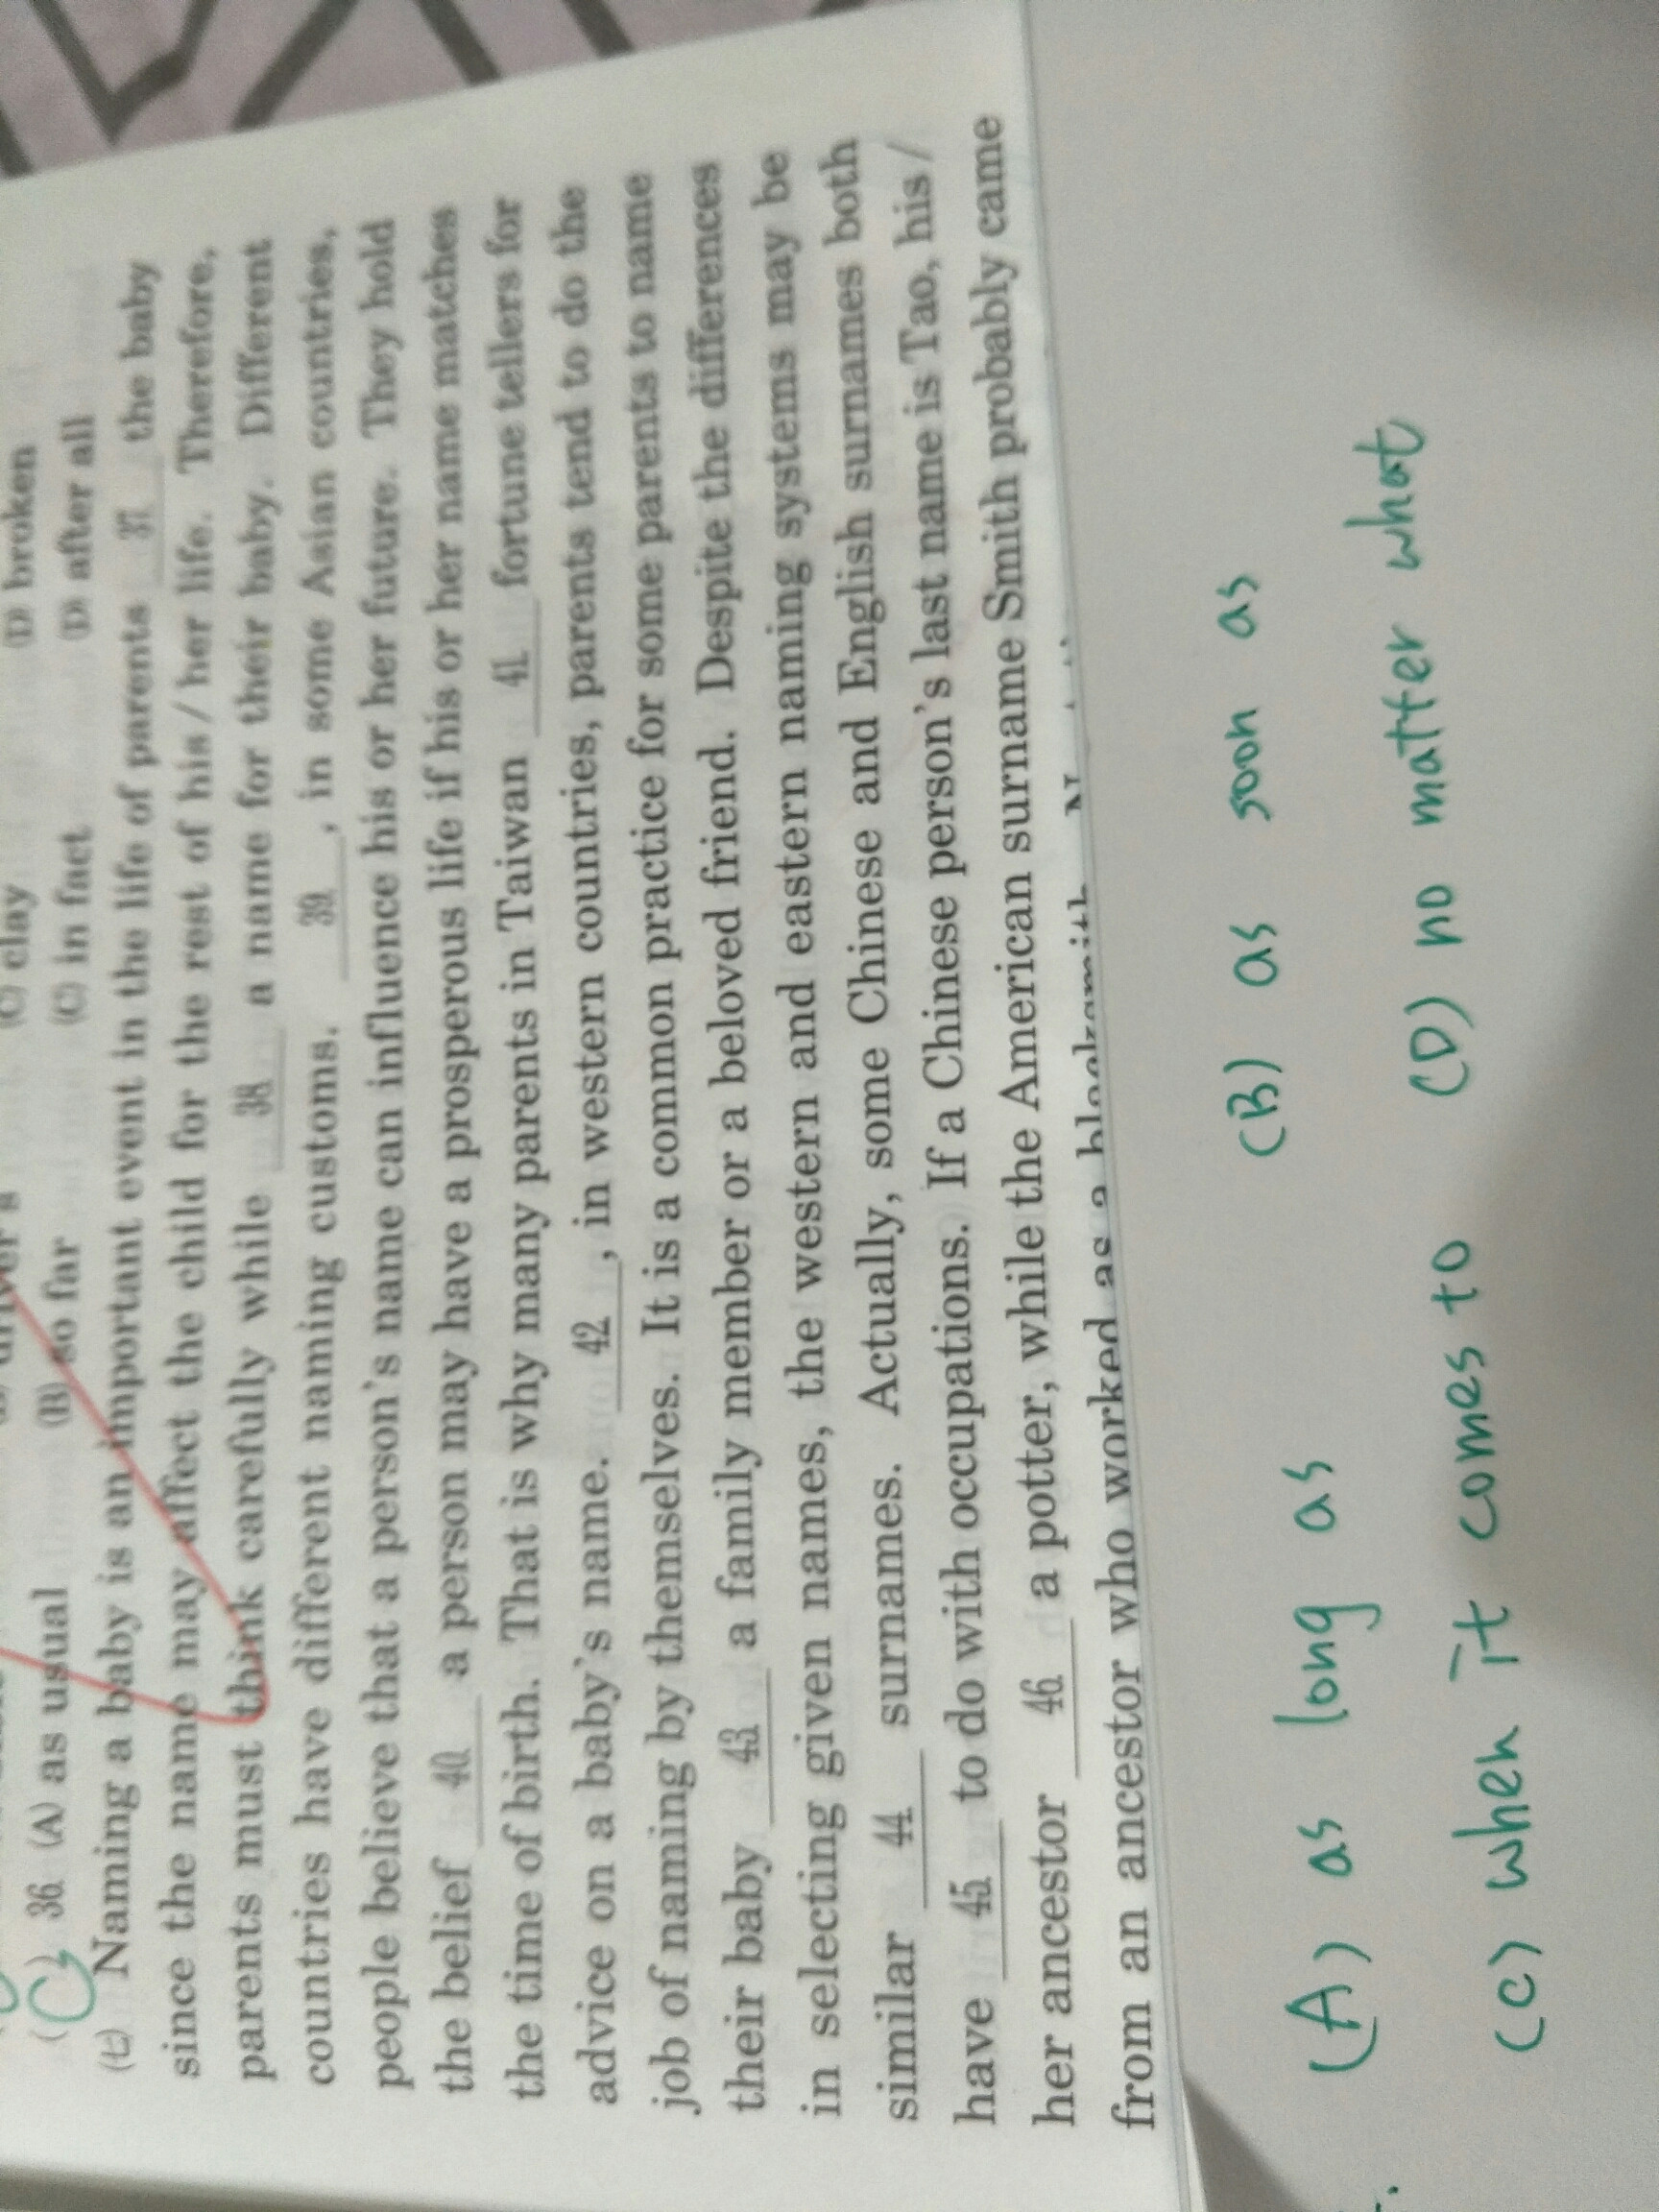 (C) clay
(D) broken
36 (A) as usual (B) so far (C) in fact (D) after all
Naming a baby is an important event in the life of parents 37 the baby
since the name may affect the child for the rest of his / her life. Therefore,
parents must think carefully while 38 a name for their baby. Different
countries have different naming customs. 39 , in some Asian countries,
people believe that a person's name can influence his or her future. They hold
the belief 40 a person may have a prosperous life if his or her name matches
the time of birth. That is why many parents in Taiwan 41 fortune tellers for
advice on a baby's name. 42 , in western countries, parents tend to do the
job of naming by themselves. It is a common practice for some parents to name
their baby 43 a family member or a beloved friend. Despite the differences
in selecting given names, the western and eastern naming systems may be
similar 44 surnames. Actually, some Chinese and English surnames both
have 45 to do with occupations. If a Chinese person's last name is Tao, his /
her ancestor 46 a potter, while the American surname Smith probably came
from an ancestor who worked as a blacksmith.
(A) as long as (B) as soon as
(C) when it comes to (D) no matter what